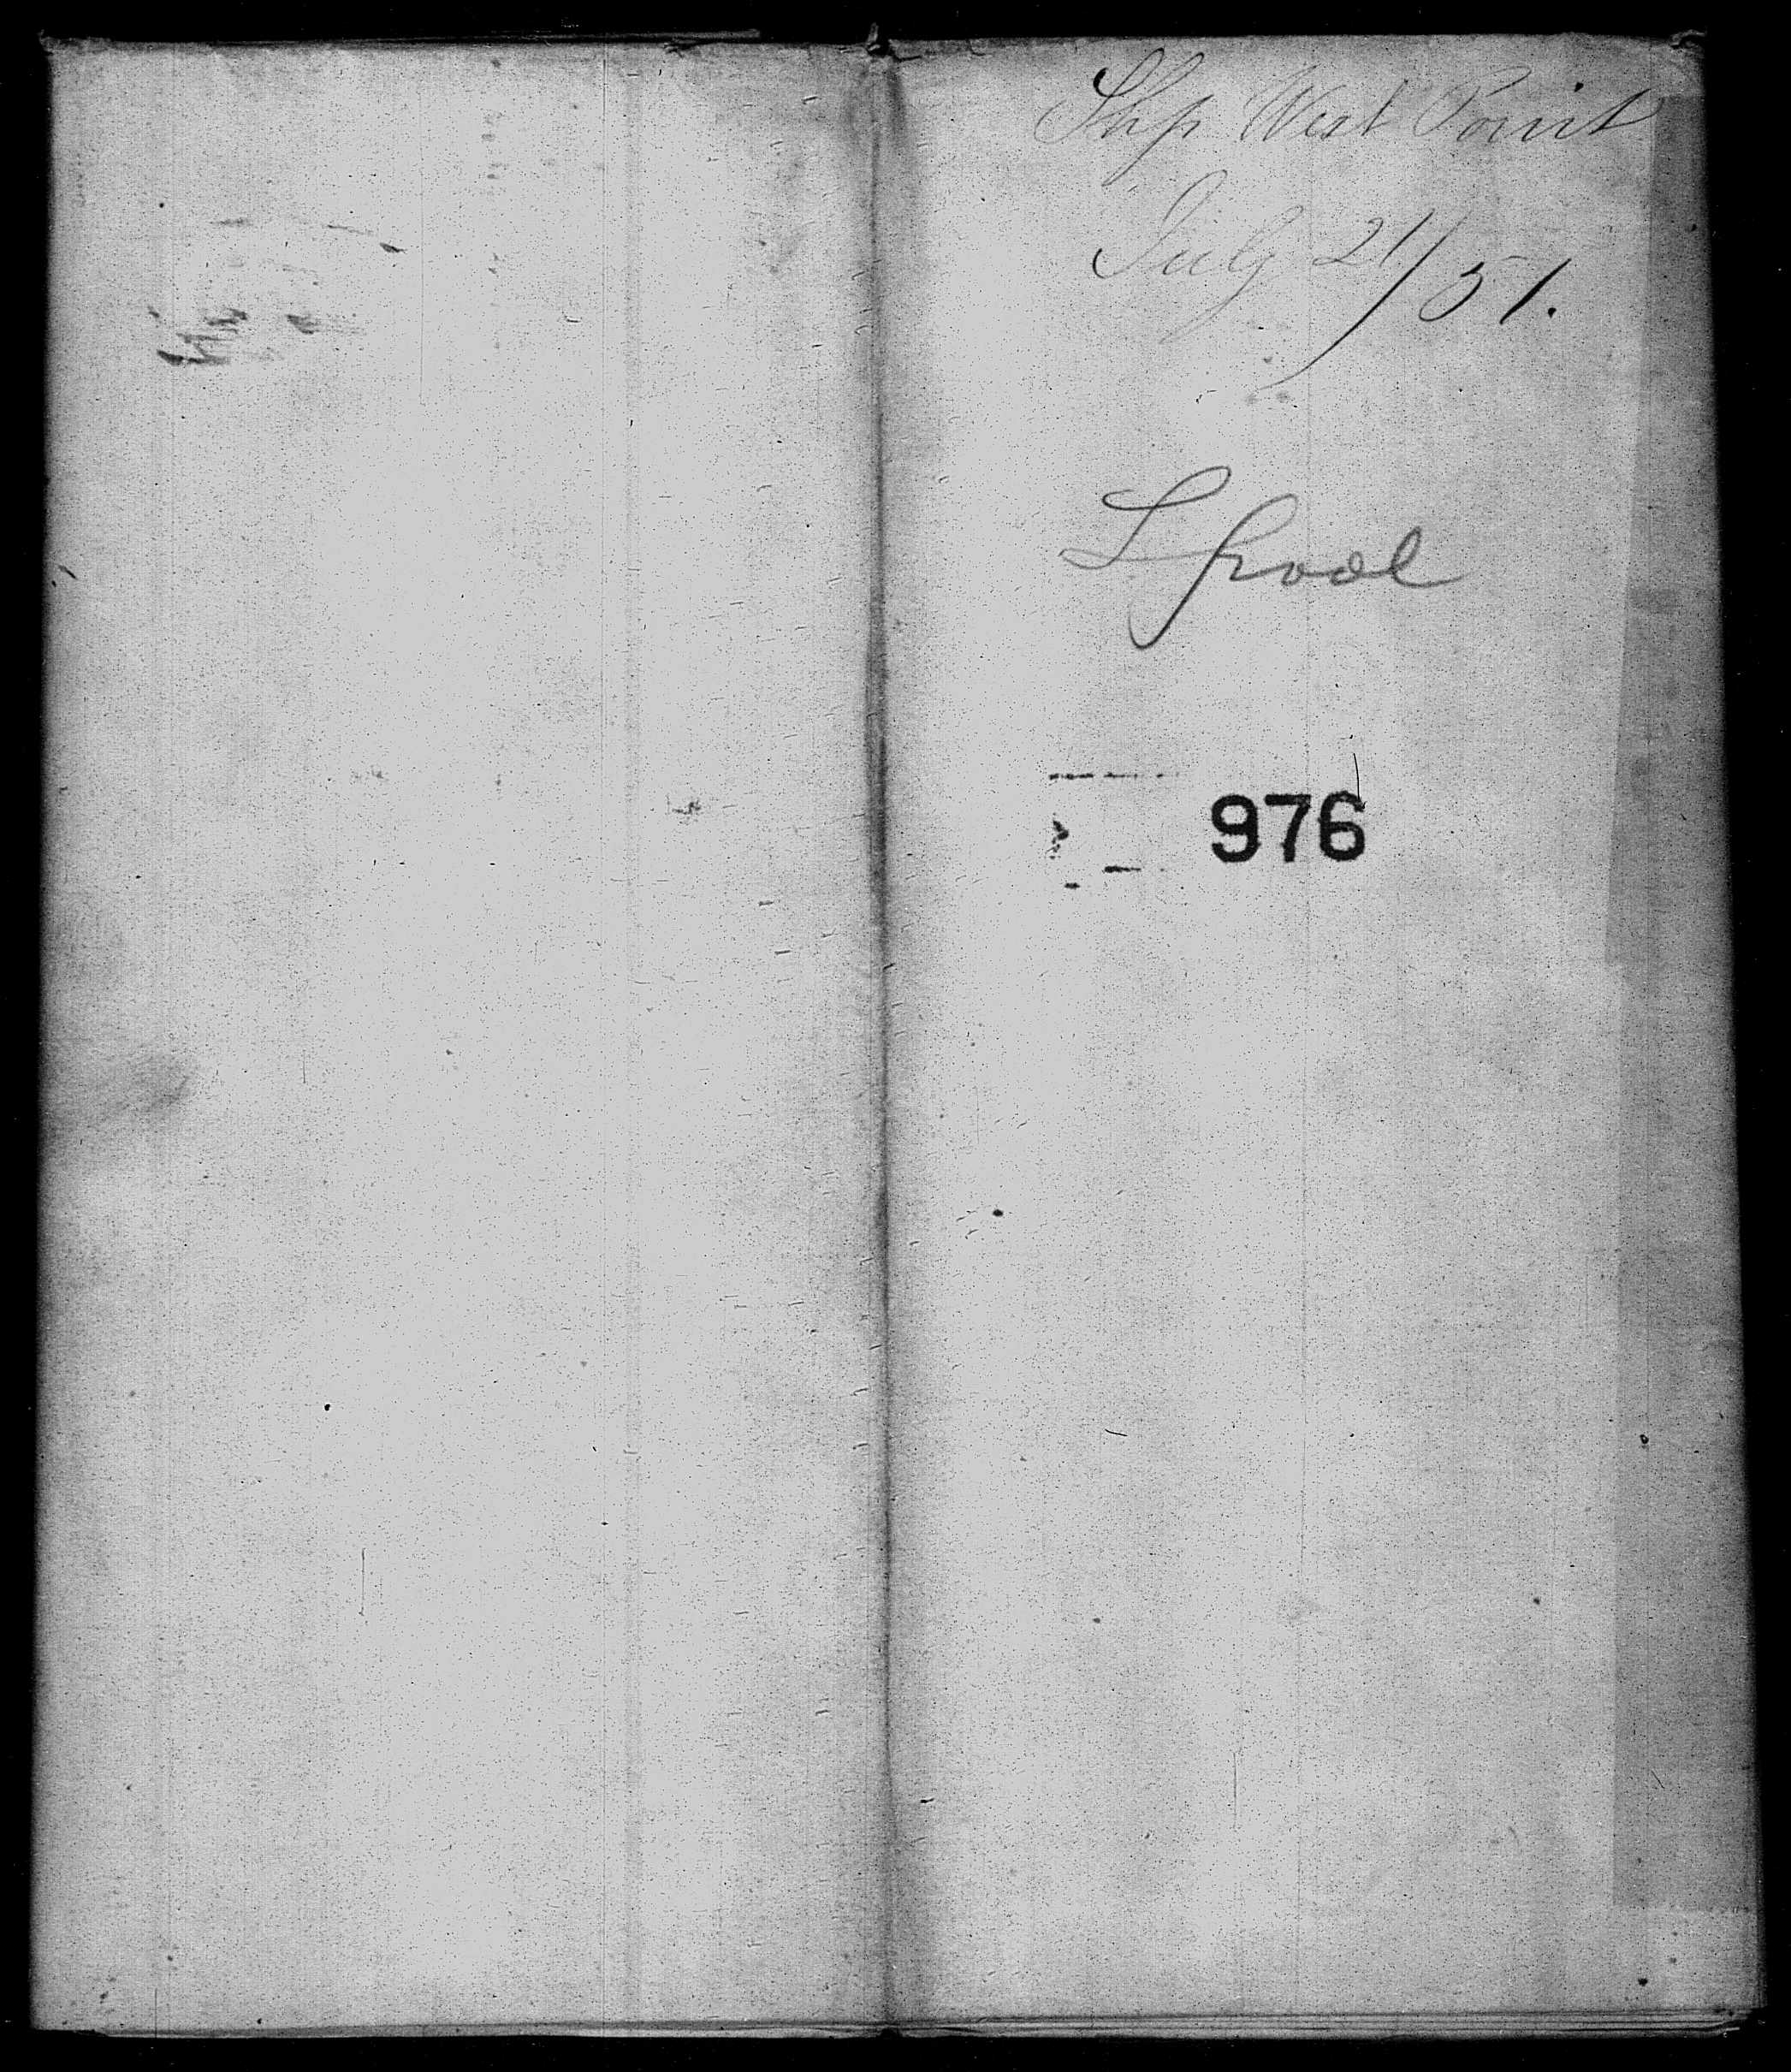 Ship West Point
July 21/51.
L'pool
976